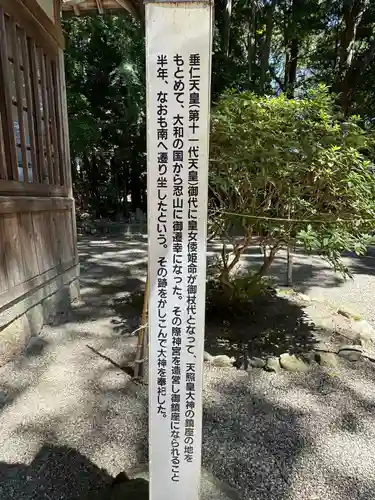 垂仁天皇(第十一代天皇)御代に皇女倭姫命が御杖代となって、天照皇大神の鎮座の地を
もとめて、大和の国から忍山に御遷幸になった。その際神宮を造営し御鎮座になられること
半年、なおも南へ遷り坐したという。御跡をかしこんで大神を奉祀した。